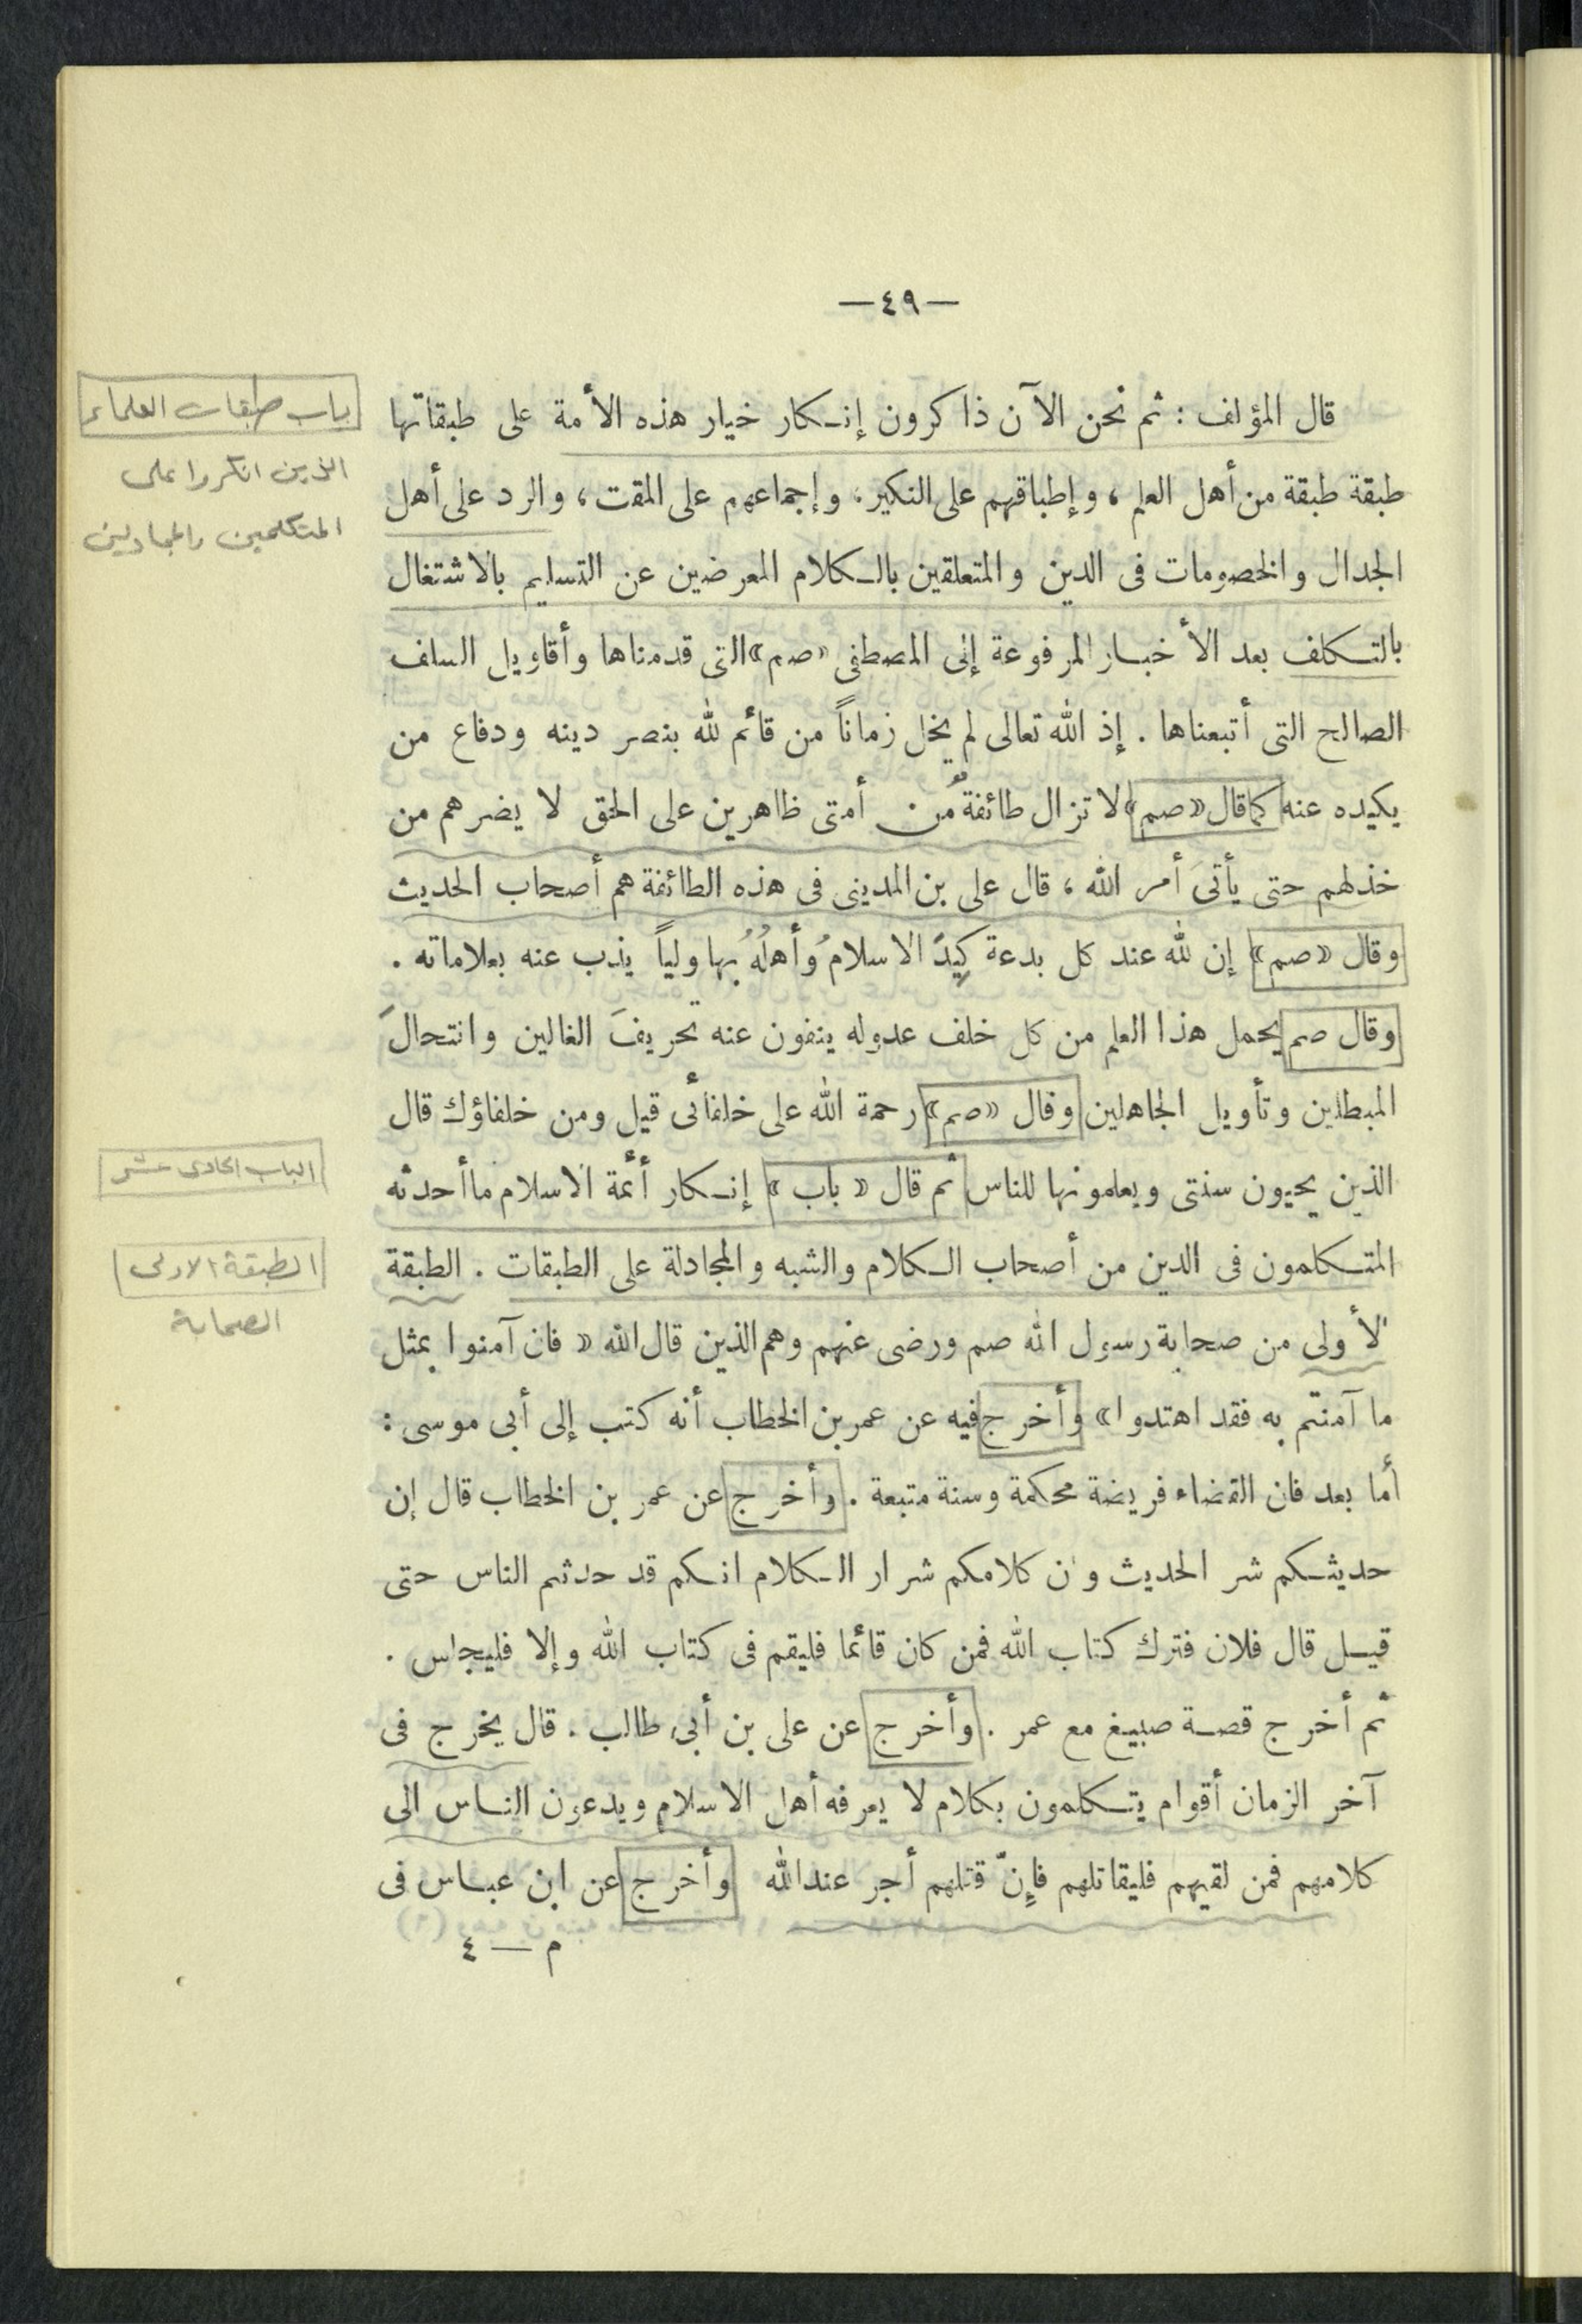 —٤٩—
قال المؤلف : ثم نحن الآن ذاكرون إنـكار خيار هذه الأمة على طبقاتها
طبقة طبقة من أهل العلم ، وإطباقهم على النكير ، وإجماعهم على المقت ، والرد على أهل
الجدال والخصومات فى الدين والمتعلقين بالـكلام المعرضين عن التسليم بالاشتغال
بالتـكلف بعد الأخبـار المرفوعة إلى المصطفى «صم» التى قدمناها وأقاويل السلف
الصالح التى أتبعناها . إذ الله تعالى لم يخل زماناً من قائم لله بنصر دينه ودفاع من
يكيده عنه كما قال «صم» لا تزال طائفةٌ من أمتى ظاهرين على الحق لا يضرهم من
خذلهم حتى يأتىَ أمر الله ، قال على بن المدينى فى هذه الطائفة هم أصحاب الحديث
وقال «صم» إن لله عند كل بدعة كِيدَ الاسلامُ وأهلُهُ بها ولياً يذب عنه بعلاماته .
وقال صم يحمل هذا العلم من كل خلف عدوله ينفون عنه تحريفَ الغالين وانتحالَ
المبطلين وتأويل الجاهلين وقال «صم» رحمة الله على خلفائى قيل ومن خلفاؤك قال
الذين يحيون سنتى ويعلمونها للناس ثم قال « باب » إنـكار أئمة الاسلام ما أحدثه
المتـكلمون فى الدين من أصحاب الـكلام والشبه والمجادلة على الطبقات . الطبقة
لأولى من صحابة رسول الله صم ورضى عنهم وهم الذين قال الله « فان آمنوا بمثل
ما آمنتم به فقد اهتدوا» وأخرج فيه عن عمر بن الخطاب أنه كتب إلى أبى موسى :
أما بعد فان القضاء فريضة محكمة وسنة متبعة . وأخرج عن عمر بن الخطاب قال إن
حديثـكم شر الحديث وان كلامكم شرار الـكلام انـكم قد حدثتم الناس حتى
قيـل قال فلان فترك كتاب الله فمن كان قائما فليقم فى كتاب الله وإلا فليجلس .
ثم أخرج قصـة صبيغ مع عمر . وأخرج عن على بن أبى طالب . قال يخرج فى
آخر الزمان أقوام يتـكلمون بكلام لا يعرفه أهل الاسلام ويدعون النـاس الى
كلامهم فمن لقيهم فليقاتلهم فإنّ قتلهم أجر عند الله وأخرج عن ابن عبـاس فى
م — ٤
باب طبقات العلماء
الذين انكروا على
المتكلمين والمجادلين
الباب الحادى عشر
الطبقة الاولى
الصحابة